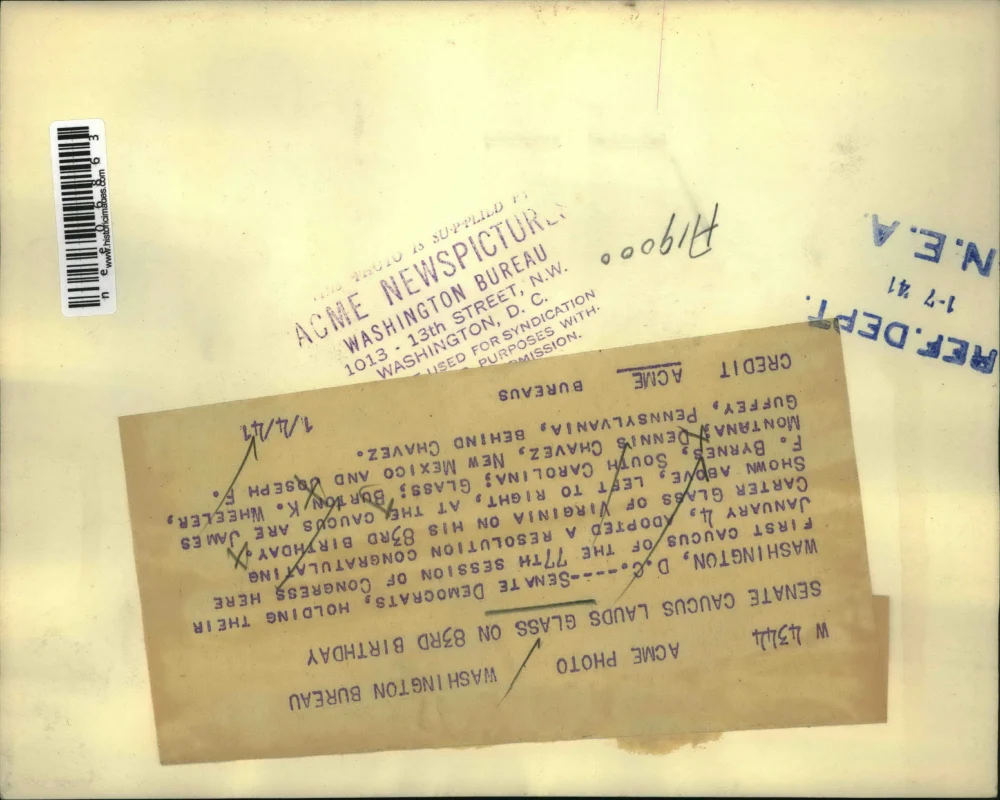 THIS PHOTO IS SUPPLIED BY
ACME NEWSPICTURES
WASHINGTON BUREAU
1013 - 13th STREET, N.W.
WASHINGTON, D. C.
USED FOR SYNDICATION
PURPOSES WITH-
MISSION.
A1900
N.E.A.
1-7 '41
REF. DEPT.
W 4344 ACME PHOTO WASHINGTON BUREAU
SENATE CAUCUS LAUDS GLASS ON 83RD BIRTHDAY
WASHINGTON, D.C.----SENATE DEMOCRATS, HOLDING THEIR
FIRST CAUCUS OF THE 77TH SESSION OF CONGRESS HERE
JANUARY 4, ADOPTED A RESOLUTION CONGRATULATING
CARTER GLASS OF VIRGINIA ON HIS 83RD BIRTHDAY.
SHOWN ABOVE, LEFT TO RIGHT, AT THE CAUCUS ARE JAMES
F. BYRNES, SOUTH CAROLINA; GLASS; BURTON K. WHEELER,
MONTANA; DENNIS CHAVEZ, NEW MEXICO AND JOSEPH F.
GUFFEY, PENNSYLVANIA, BEHIND CHAVEZ.
CREDIT ACME BUREAUS 1/4/41
nee06863
www.historicimages.com